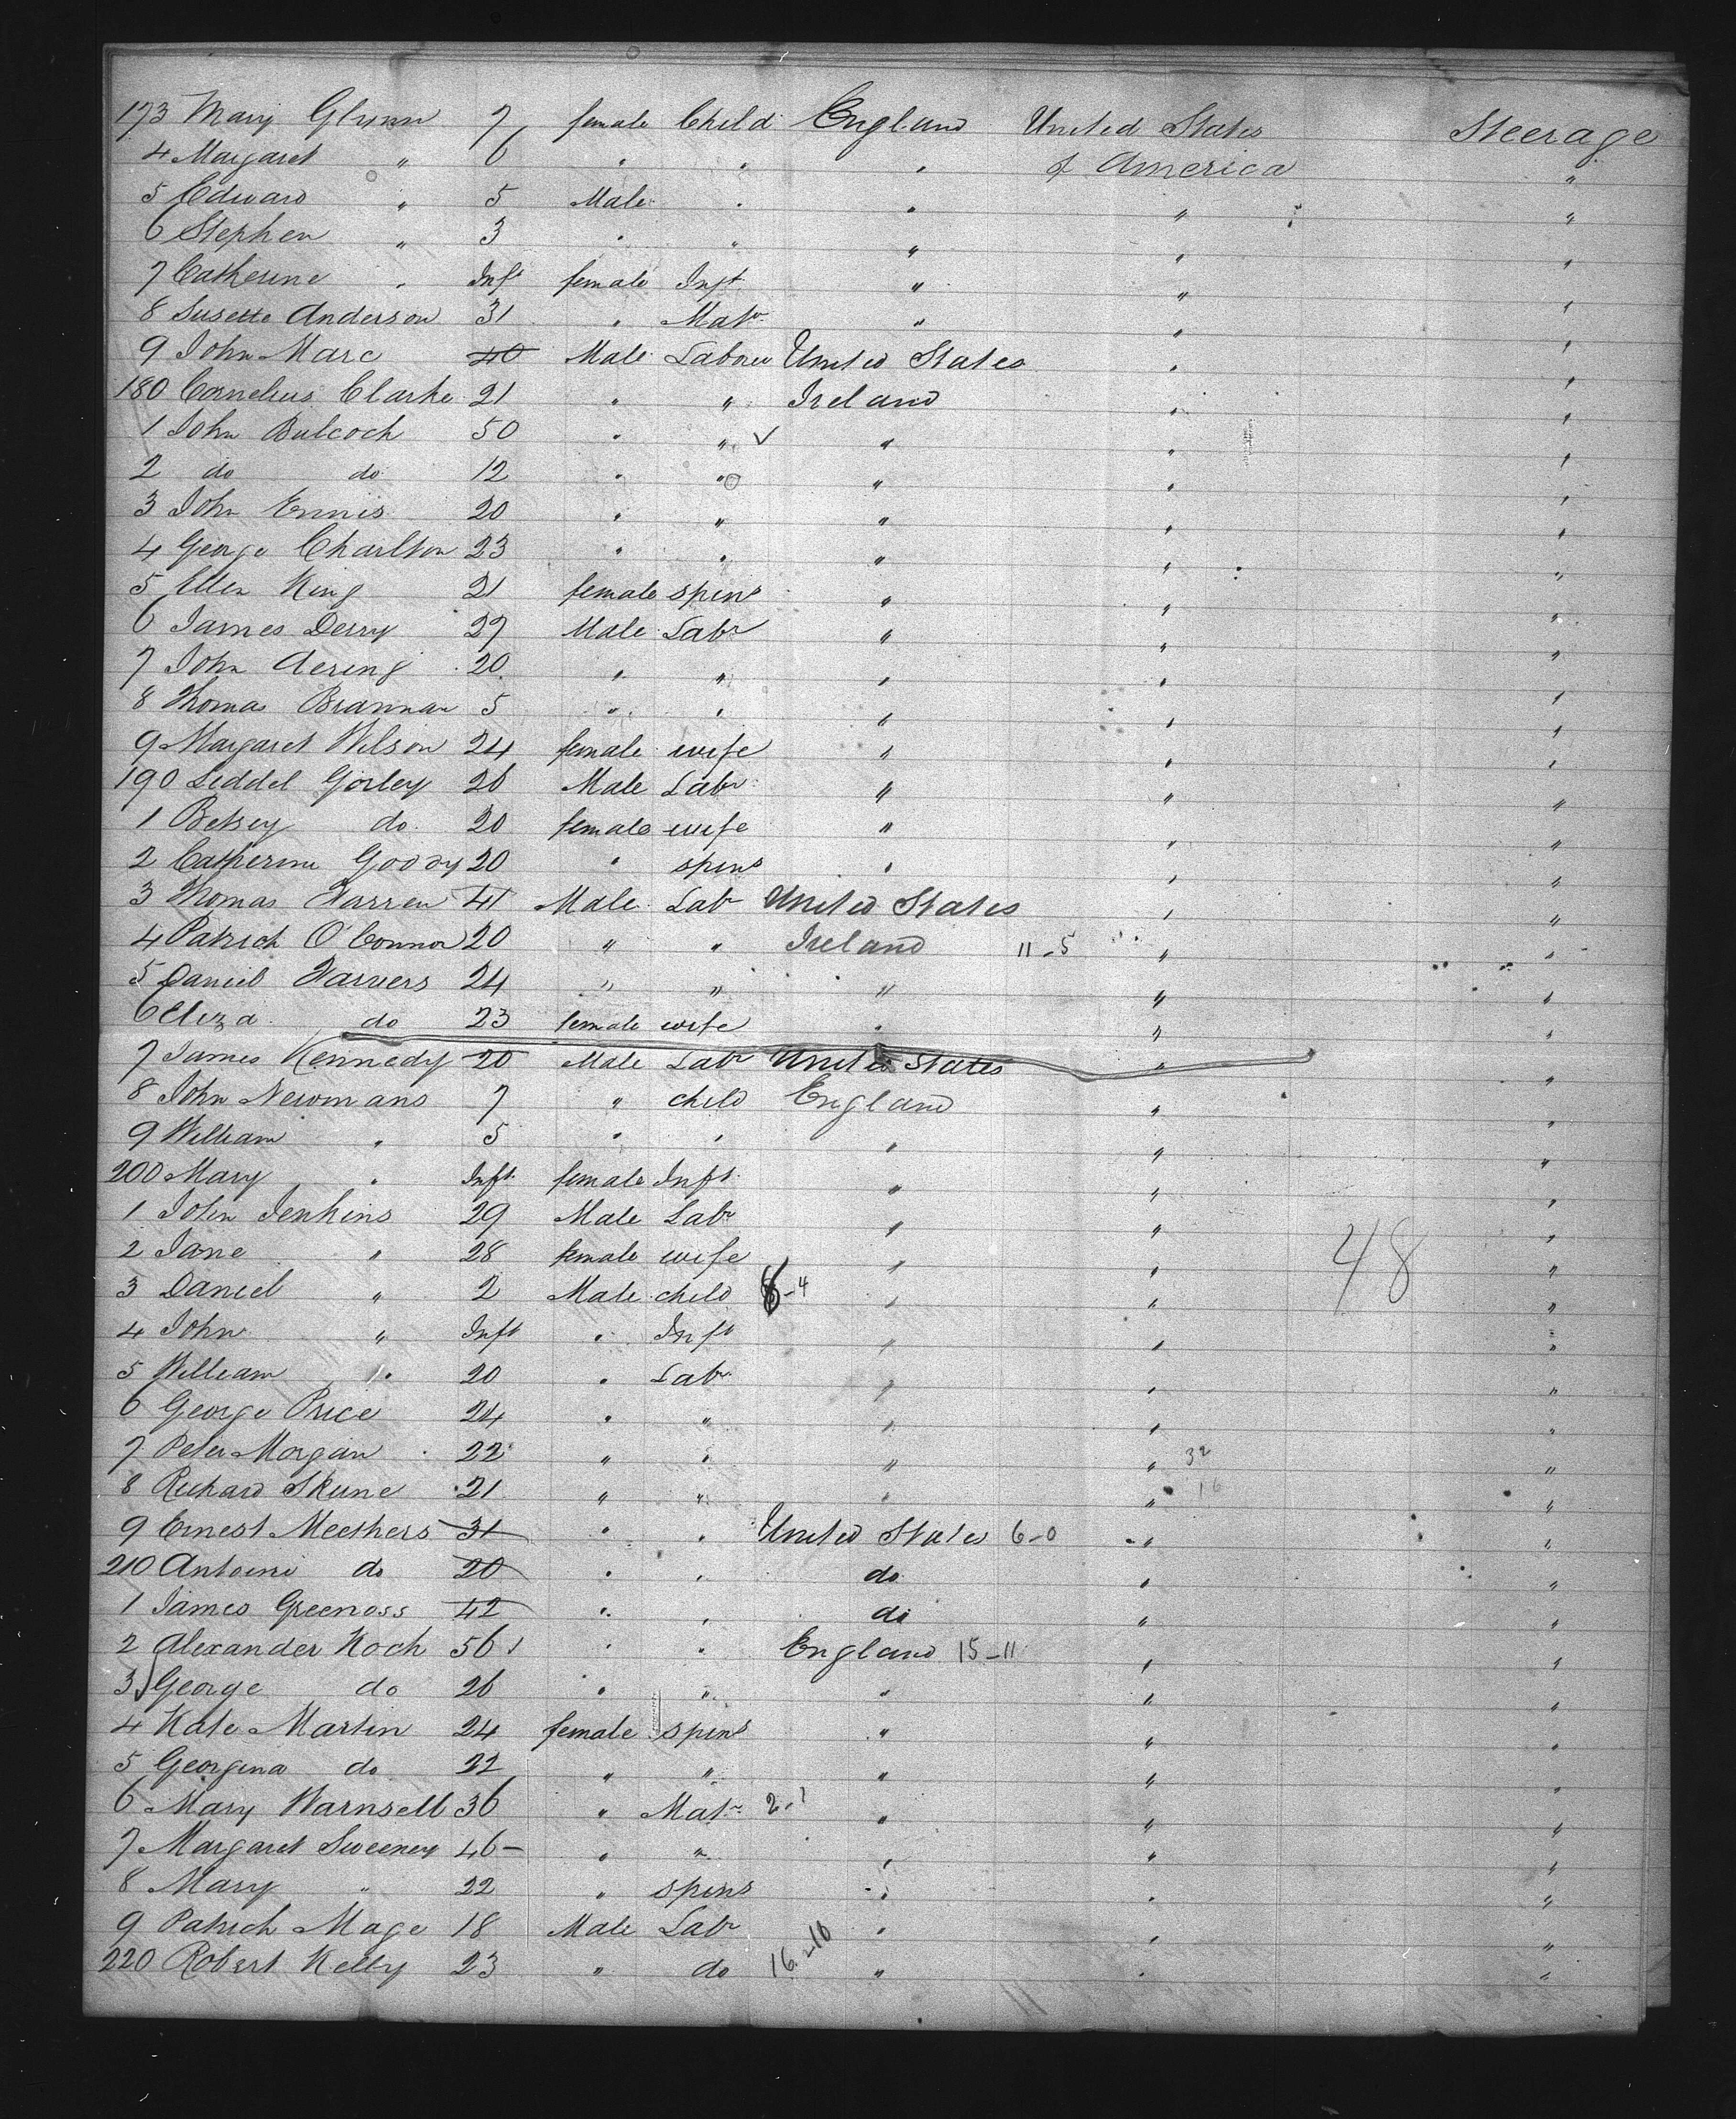 173 Mary Glynn 7 female Child England United States Steerage
4 Margaret " 6 " " " of America "
5 Edward " 5 Male " " " "
6 Stephen " 3 " " " " "
7 Catherine " Inft female Inft " " "
8 Susette Anderson 31 " Matr " " "
9 John Marc 40 Male Laborer United States " "
180 Cornelius Clarke 21 " " Ireland " "
1 John Bulcock 50 " " ✓ " " "
2 do do 12 " " " " "
3 John Ennis 20 " " " " "
4 George Charlton 23 " " " " "
5 Ellen King 21 female spins " " "
6 James Derry 27 Male Labr " " "
7 John Aering 20 " " " " "
8 Thomas Brannan 5 " " " " "
9 Margaret Wilson 24 female wife " " "
190 Liddel Gorley 26 Male Labr " " "
1 Betsey do 20 female wife " " "
2 Catherine Goody 20 " spins " " "
3 Thomas Farren 41 Male Labr United States " "
4 Patrick O'Connor 20 " " Ireland 11-5 " "
5 Daniel Farvers 24 " " " " "
6 Eliza do 23 female wife " " "
7 James Kennedy 20 Male Labr United States " "
8 John Newmans 7 " child England " "
9 William " 5 " " " " "
200 Mary " Inft female Inft " " "
1 John Jenkins 29 Male Labr " " "
2 Jane " 28 female wife " " 48 "
3 Daniel " 2 Male child 8-4 " " "
4 John " Inft " Inft " " "
5 William " 20 " Labr " " "
6 George Price 24 " " " " "
7 Peter Morgan 22 " " " " 32 "
8 Richard Skune 21 " " " " 16 "
9 Ernest Meethers 31 " " United States 6-0 " "
210 Antoine do 20 " " do " "
1 James Greenoss 42 " " do " "
2 Alexander Koch 56 " " England 15-11 " "
3 George do 26 " " " " "
4 Kate Martin 24 female spins " " "
5 Georgina do 22 " " " " "
6 Mary Warnsell 36 " Matr 2-1 " " "
7 Margaret Sweeney 46 " " " " "
8 Mary " 22 " spins " " "
9 Patrick Mage 18 Male Labr " " "
220 Robert Kelly 23 " do 16-10 " " "